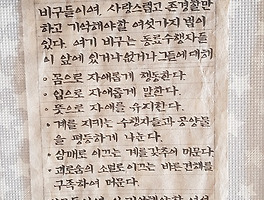 비구들이여, 사랑스럽고 존경할만
하고 기억해야할 여섯가지 법이
있다. 여기 비구는 동료수행자들
이 앞에 있거나 없거나 그들에 대해
• 몸으로 자애롭게 행동한다.
• 입으로 자애롭게 말한다.
• 뜻으로 자애를 유지한다.
• 계를 지키는 수행자들과 공양물
을 평등하게 나눈다.
• 삼매로 이끄는 계를 갖추어 머문다.
• 괴로움의 소멸로 이끄는 바른견해를
구족하여 머문다.